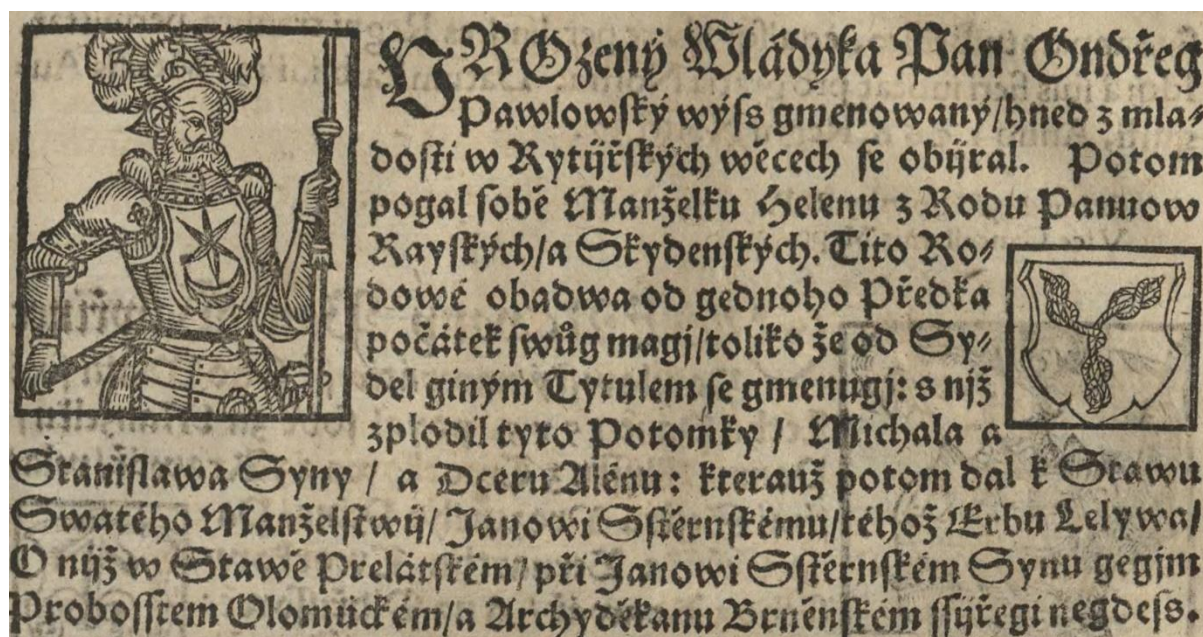 VROzený Wládyka Pan Ondřeg
Pawlowſký wýſs gmenowaný/hned z mla⸗
doſti w Rytijřſkých wěcech ſe obijral. Potom
pogal ſobě Manželku Helenu z Rodu Panuow
Rayſkých/a Skydenſkých. Tito Ro⸗
dowé obadwa od gednoho Předka
počátek ſwůg magj/toliko že od Sy⸗
del giným Tytulem ſe gmenugj: s njž
zplodil tyto Potomky / Michala a
Staniſlawa Syny / a Dceru Alénu: kterauž potom dal k Stawu
Swatého Manželſtwij/ Janowi Sſtěrnſkému/téhož Erbu Lelywa/
O nijž w Stawě Prelátſkém/ při Janowi Sſtěrnſkém Synu gegjm
Proboſſtem Olomúckém/a Archyděkanu Brněnſkém ſſyřegi negdeſs.